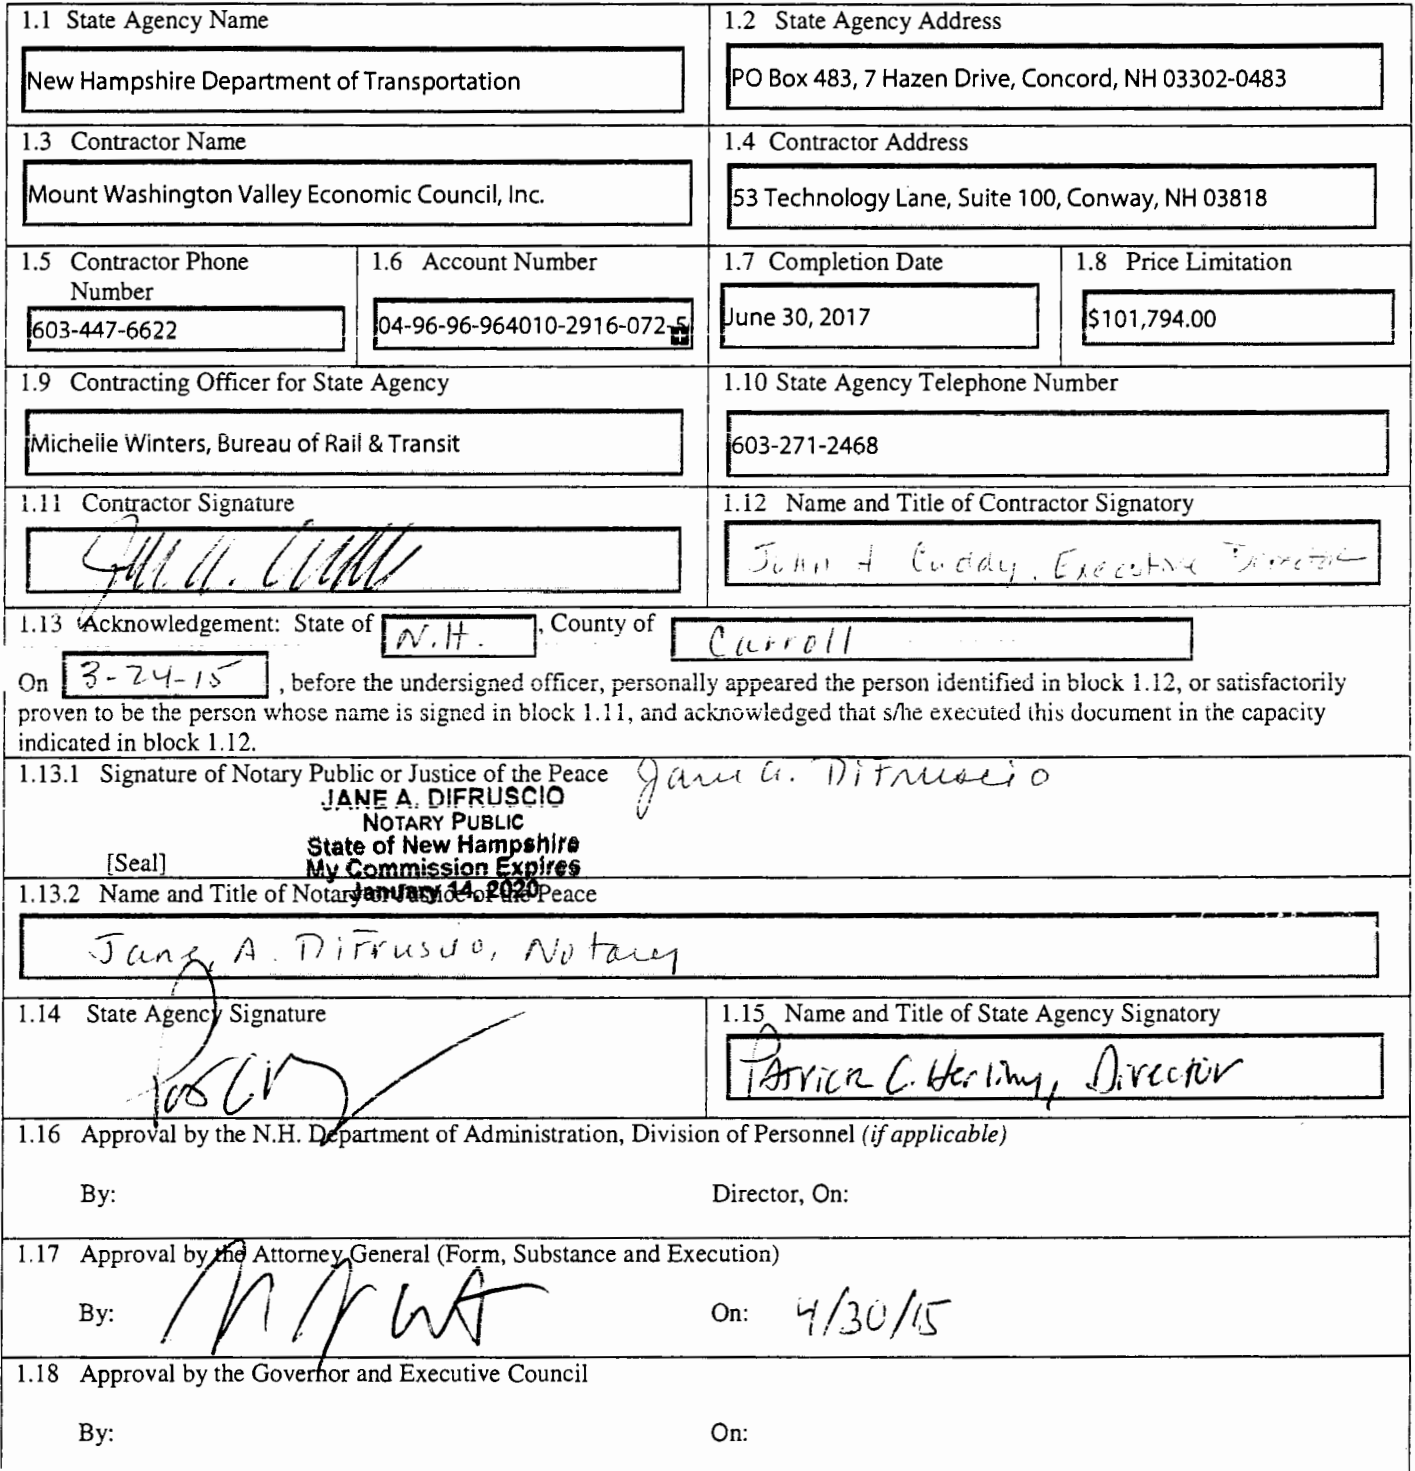 1.1 State Agency Name
1.2 State Agency Address
New Hampshire Department of Transportation
PO Box 483, 7 Hazen Drive, Concord, NH 03302-0483
1.3 Contractor Name
1.4 Contractor Address
Mount Washington Valley Economic Council, Inc.
53 Technology Lane, Suite 100, Conway, NH 03818
1.5 Contractor Phone
Number
1.6 Account Number
1.7 Completion Date
1.8 Price Limitation
603-447-6622
04-96-96-964010-2916-072-5
June 30, 2017
$101,794.00
1.9 Contracting Officer for State Agency
1.10 State Agency Telephone Number
Michelle Winters, Bureau of Rail & Transit
603-271-2468
1.11 Contractor Signature
1.12 Name and Title of Contractor Signatory
John A Cuddy, Executive Director
1.13 Acknowledgement: State of N.H. , County of Carroll
On 3-24-15 , before the undersigned officer, personally appeared the person identified in block 1.12, or satisfactorily
proven to be the person whose name is signed in block 1.11, and acknowledged that s/he executed this document in the capacity
indicated in block 1.12.
1.13.1 Signature of Notary Public or Justice of the Peace Jane A. DiFruscio
JANE A. DIFRUSCIO
NOTARY PUBLIC
State of New Hampshire
[Seal] My Commission Expires
January 14, 2020
1.13.2 Name and Title of Notary or Justice of the Peace
Jane A. DiFruscio, Notary
1.14 State Agency Signature
1.15 Name and Title of State Agency Signatory
Patrick C. Herlihy, Director
1.16 Approval by the N.H. Department of Administration, Division of Personnel (if applicable)
By: Director, On:
1.17 Approval by the Attorney General (Form, Substance and Execution)
By: On: 4/30/15
1.18 Approval by the Governor and Executive Council
By: On: